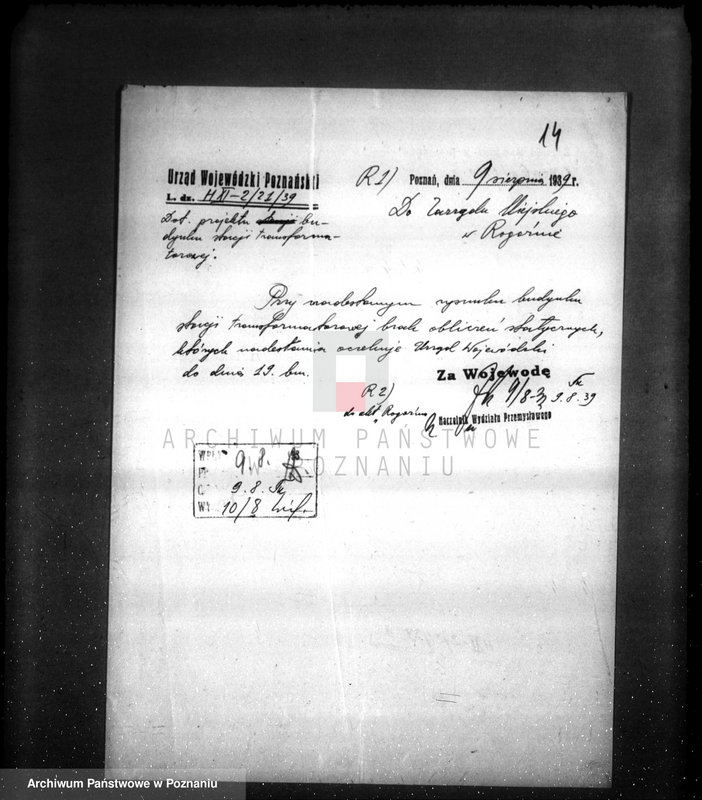 14
Urząd Wojewódzki Poznański
L. dz. H XI-2/21/39
R 1) Poznań, dnia 9 sierpnia 1939 r.
Dot. projektu stacji bu-
dynku stacji transforma-
torowej.
Do Zarządu Miejskiego
w Rogoźnie
Przy nadesłanym rysunku budynku
stacji transformatorowej brak obliczeń statycznych,
których nadesłania oczekuje Urząd Wojewódzki
do dnia 19. bm.
Za Wojewodę
9/8 9.8.39
Naczelnik Wydziału Przemysłowego
R 2)
do akt „Rogoźno
ARCHIWUM PAŃSTWOWE
W POZNANIU
9.8.
9. 8.
10/8
Archiwum Państwowe w Poznaniu